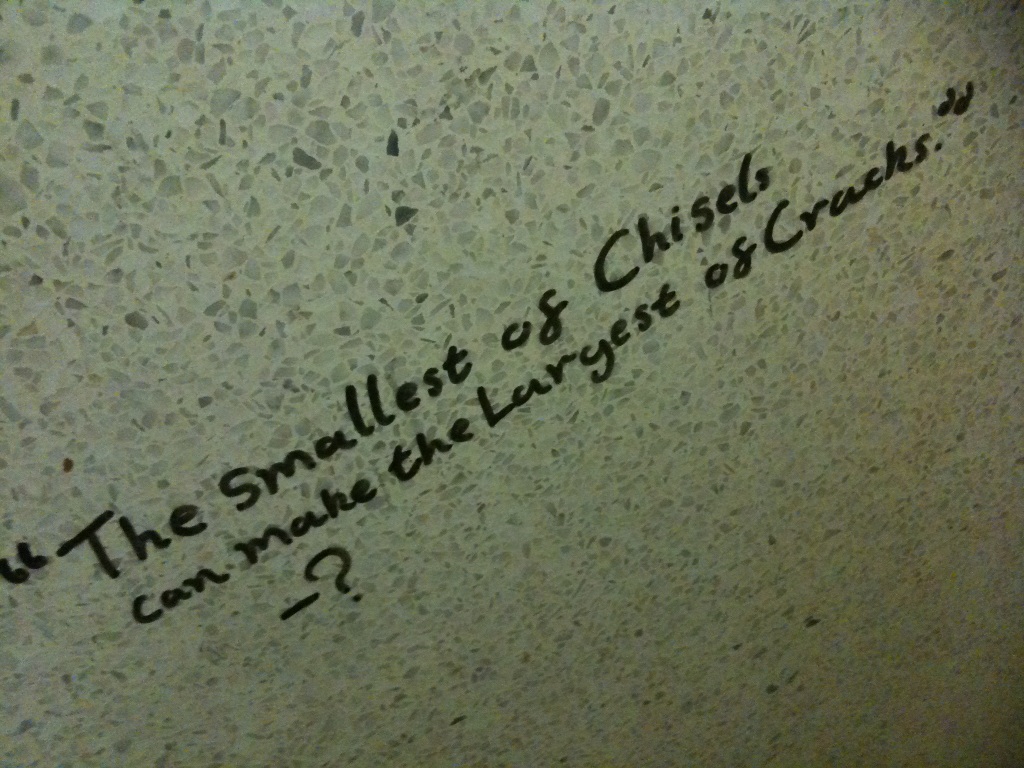 “The Smallest of Chisels
can make the Largest of Cracks.”
–?